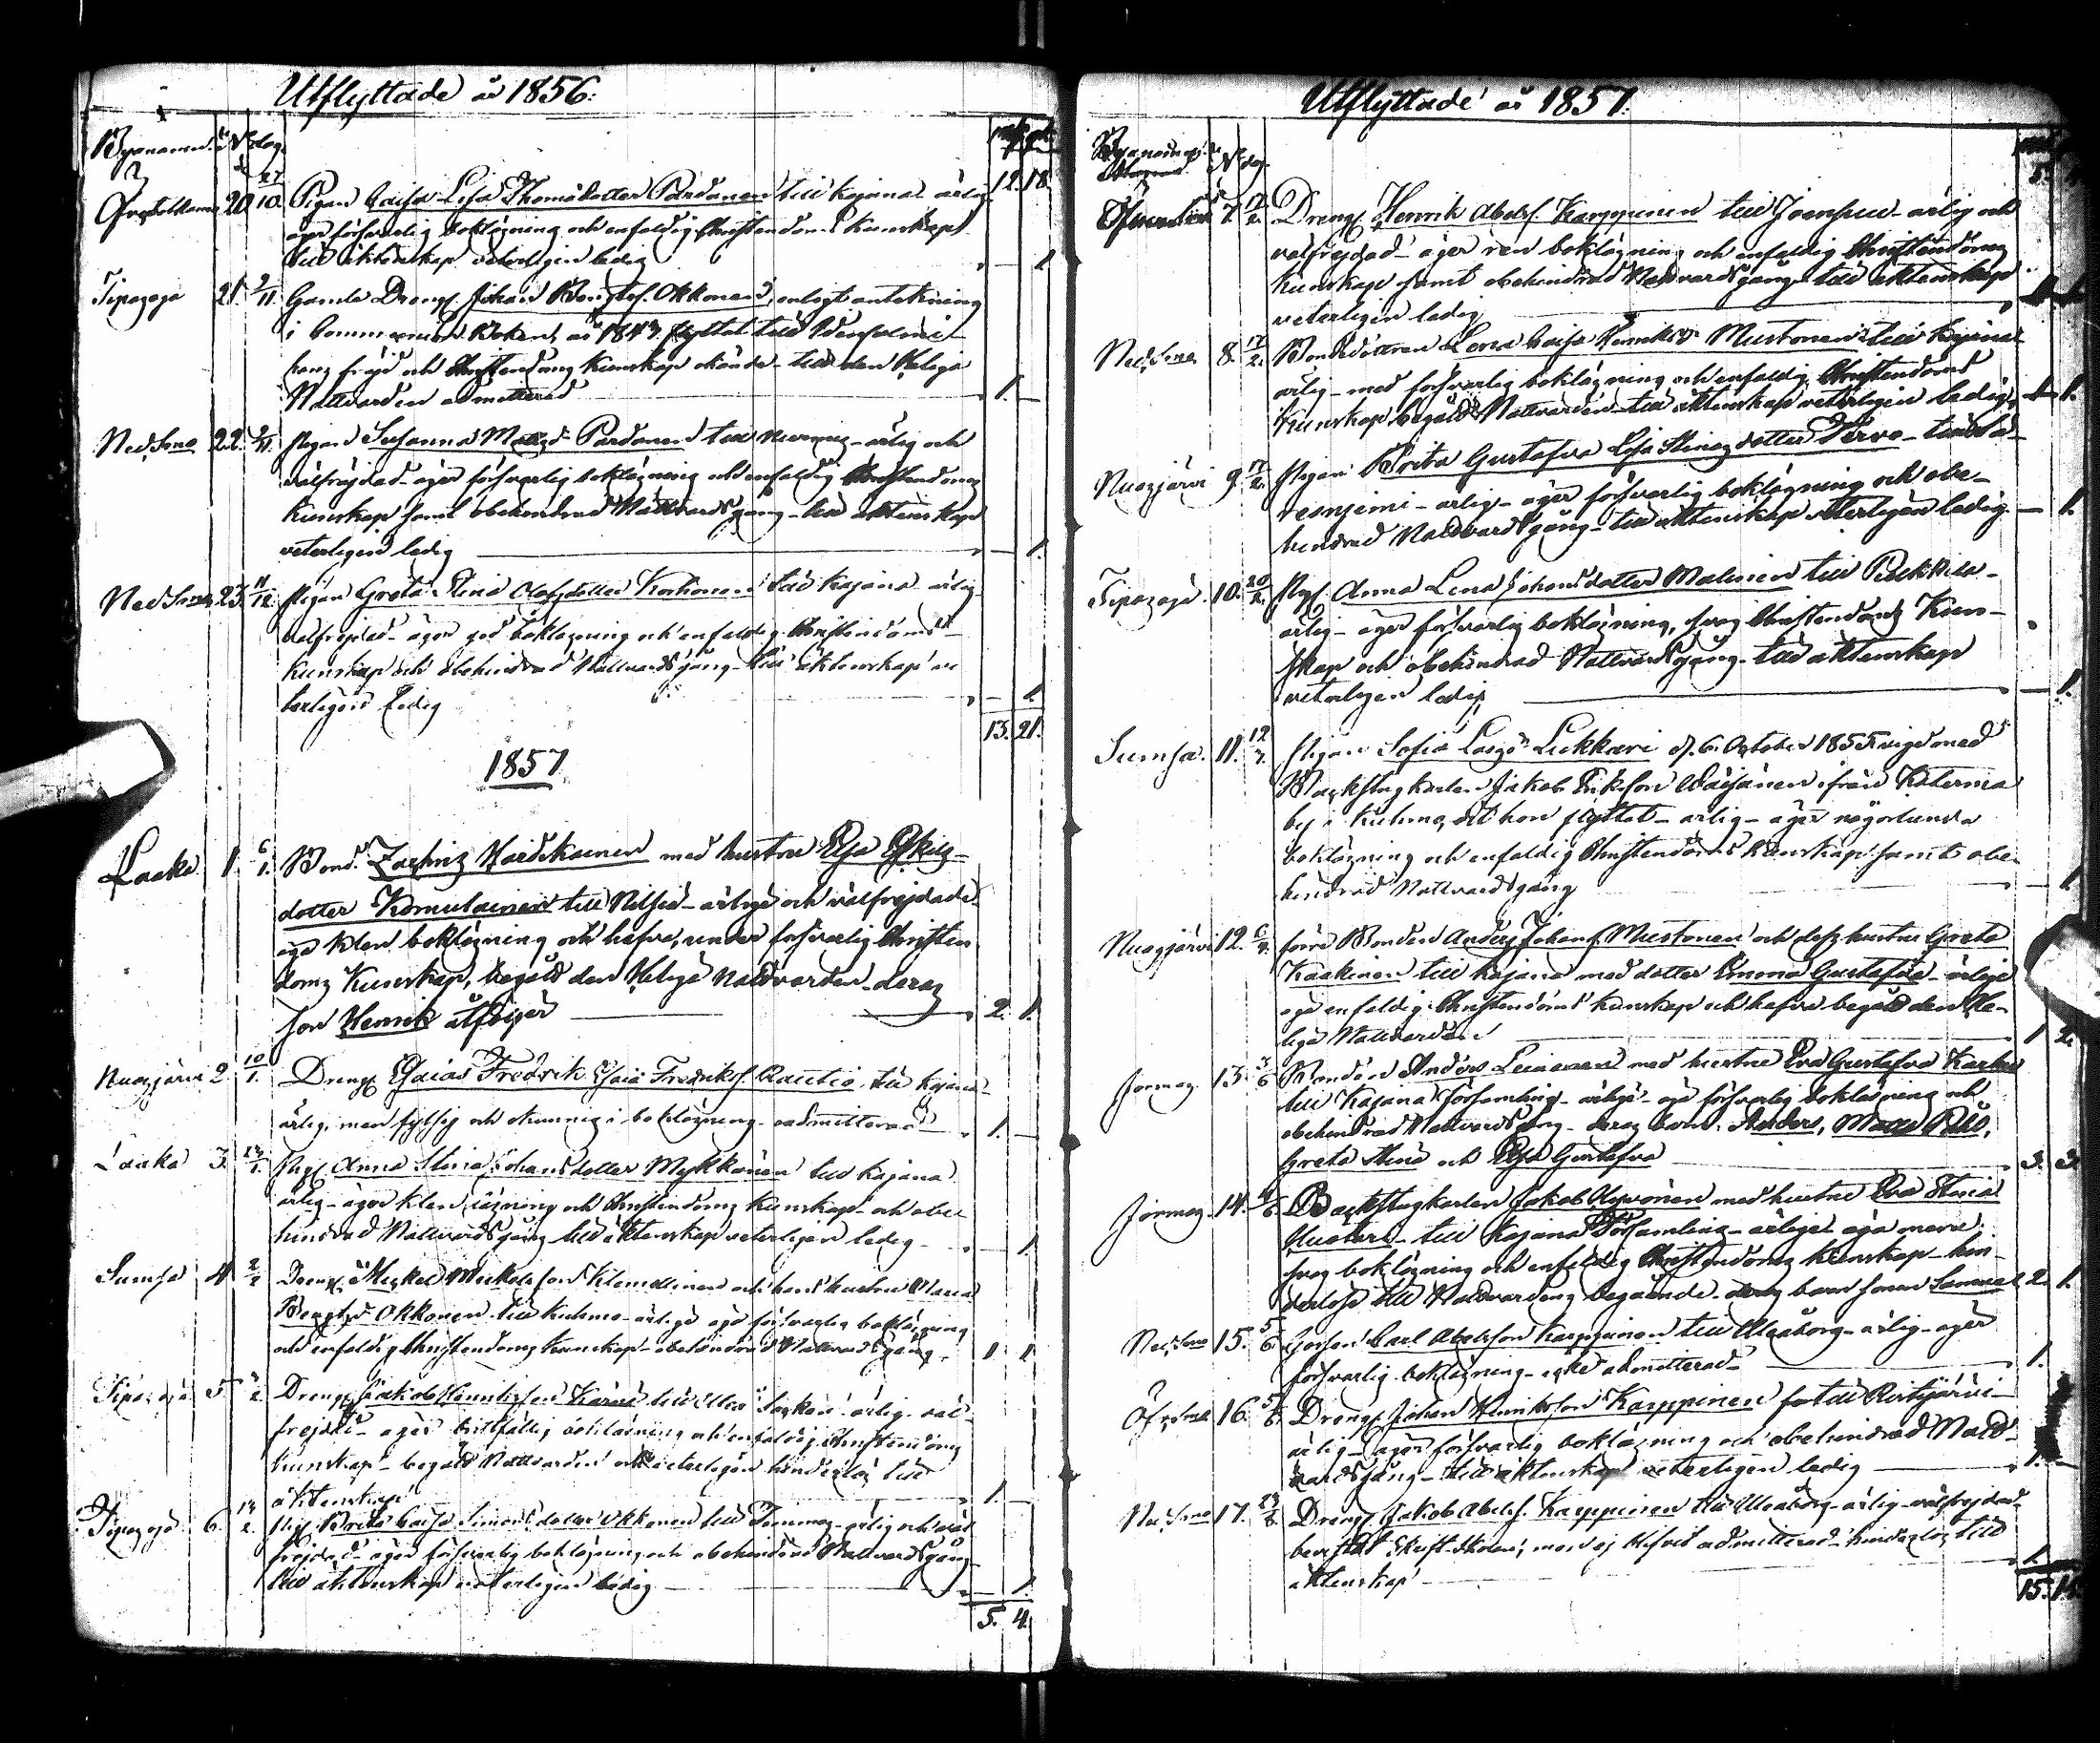 Utflyttade år 1856:
Byanamn. № dag.
20 27/10. Pigan Caisa Lisa Thomædotter Pardanen till Kajana ärlig 12. 18.
äger försvarlig bokläsning och enfaldig Christendoms Kunskap
till äktenskap veterligen ledig 1
Tipasoja 21. 9/11. Gamla Dreng. Johan Bengtss. Okkonen, enligt anteckning
i Communion Boken, år 1843 flyttat till
hans frejd och Christendoms Kunskap okände till den Heliga
Nattvarden admitterad 1.
Ned.Sono 22. 9/11. Pigan Susanna Matsd. Pardanen till Nurmes ärlig och
välfrejdad äger försvarlig bokläsning och enfaldig Christendoms
Kunskap samt obehindrad Nattvardsgång till äktenskap
veterligen ledig 1.
Ned Sono 23. 11/12. Pigan Greta Stina Olofsdotter Korhonen till Kajana ärlig
välfrejdad äger god bokläsning och enfaldig Christendoms
Kunskap och obehindrad Nattvardsgång till äktenskap ve
terligen ledig 1.
13. 21.
1857
Laaka 1. 6/1. Bond. Zachris Hardikainen med hustru Elsa Eskils
dotter Komulainen till Nilsiä ärliga och välfrejdade
äga klen bokläsning och hafva, under försvarlig Christen
doms Kunskap, begått den Heliga Nattvarden deras
son Henrik åtföljer 2. 1.
Nuasjärvi 2 10/1. Dreng Esaias Fredrik Esaiæ Fredrikss. Rautio till Kajana
ärlig, men och okunnig i bokläsning oadmitterad 1.
Laaka 3. Pig. Anna Stina Johansdotter Mykkänen till Kajana
ärlig äger klen läsning och Christendoms Kunskap och obe
hindrad Nattvardsgång till äktenskap veterligen ledig 1
Sumsa 4 2/2 Dreng. Mickel Mickelsson Klemettinen och hans hustru Maria
Bengtsd. Okkonen till Kuhmo ärliga äga försvarlig bokläsning
och enfaldig Christendoms Kunskap obehindrad Nattvardsgång 1 1
Tipasoja 5 Dreng Jakob Henriksson Kärnä till ärlig väl
frejdad äger bokläsning och enfaldig Christendoms
Kunskap begått Nattvarden och veterligen hinderlös till
äktenskap 1.
Tipasoja 6. Pig. Brita Caisa Simonsdotter Okkonen till ärlig och väl
frejdad äger försvarlig bokläsning och obehindrad Nattvardsgång
till äktenskap veterligen ledig 1
5. 4.
Utflyttade år 1857.
№ dag.
7 Dreng. Henrik Abelss. Karppinen till Joensuu ärlig och
välfrejdad äger ren bokläsning och enfaldig Christendoms
Kunskap samt obehindrad Nattvardsgång till äktenskap
veterligen ledig
Ned.Sono 8. Bondedottren Lena Caisa Henriksd. Mustonen till Kajana
ärlig med försvarlig bokläsning och enfaldig Christendoms
Kunskap begått Nattvarden till äktenskap veterligen ledig 1.
Nuasjärvi 9 Pigan Brita Gustafva Lisa Stinasdotter Tervo till Sä
resniemi ärlig äger försvarlig bokläsning och obe-
hindrad Nattvardsgång till äktenskap veterligen ledig 1.
Tipasoja 10. 20/2. Pig. Anna Lena Johansdotter Malinen till
ärlig äger försvarlig bokläsning, svag Christendoms Kun-
skap och obehindrad Nattvardsgång till äktenskap
veterligen ledig 1.
Sumsa 11. Pigan Sofia Larsd. Lukkari d. 6. October 1855 vigd med
Backstugkarlen Jakob Eriksson Väisänen ifrån Katerma
by i Kuhmo, dit hon flyttat ärlig äger någorlunda
bokläsning och enfaldig Christendoms Kunskap samt obe
hindrad Nattvardsgång 1
Nuasjärvi 12. förra Bonden Anders Johanss. Mustonen och dess hustru Greta
Kaakinen till Kajana med dotter Emma Gustafva ärliga
äga enfaldig Christendoms Kunskap och hafva begått den He-
liga Nattvarden 1 2.
Jormas 13. Bonden Anders Leinonen med hustru Eva Gustafva
till Kajana Församling ärliga äga försvarlig bokläsning och
obehindrad Nattvardsgång deras barn Anders,
Greta Stina och Elsa Gustafva 3. 3.
Jormas 14. Backstugkarlen Jakob Hyvönen med hustru Eva Stina
till Kajana Församling ärliga äga
svag bokläsning och enfaldig Christendoms Kunskap hin-
derlöse till Nattvardens begående deras barn sonen Samuel 2. 1.
Ned.Sono 15. 5/6. Gossen Carl Abelsson Karppinen till Uleåborg ärlig äger
försvarlig bokläsning icke admitterad 1.
16. 5/6. Dreng Johan Henriksson Karppinen till Ristijärvi
ärlig äger försvarlig bokläsning och obehindrad Natt-
vardsgång till äktenskap veterligen ledig 1.
Ned.Sono 17. Dreng Jakob Abelss. Karppinen till Uleåborg ärlig välfrejdad
bevistat Skrift-skolan, men ej blifvit admitterad hinderlös till
äktenskap 1.
15.